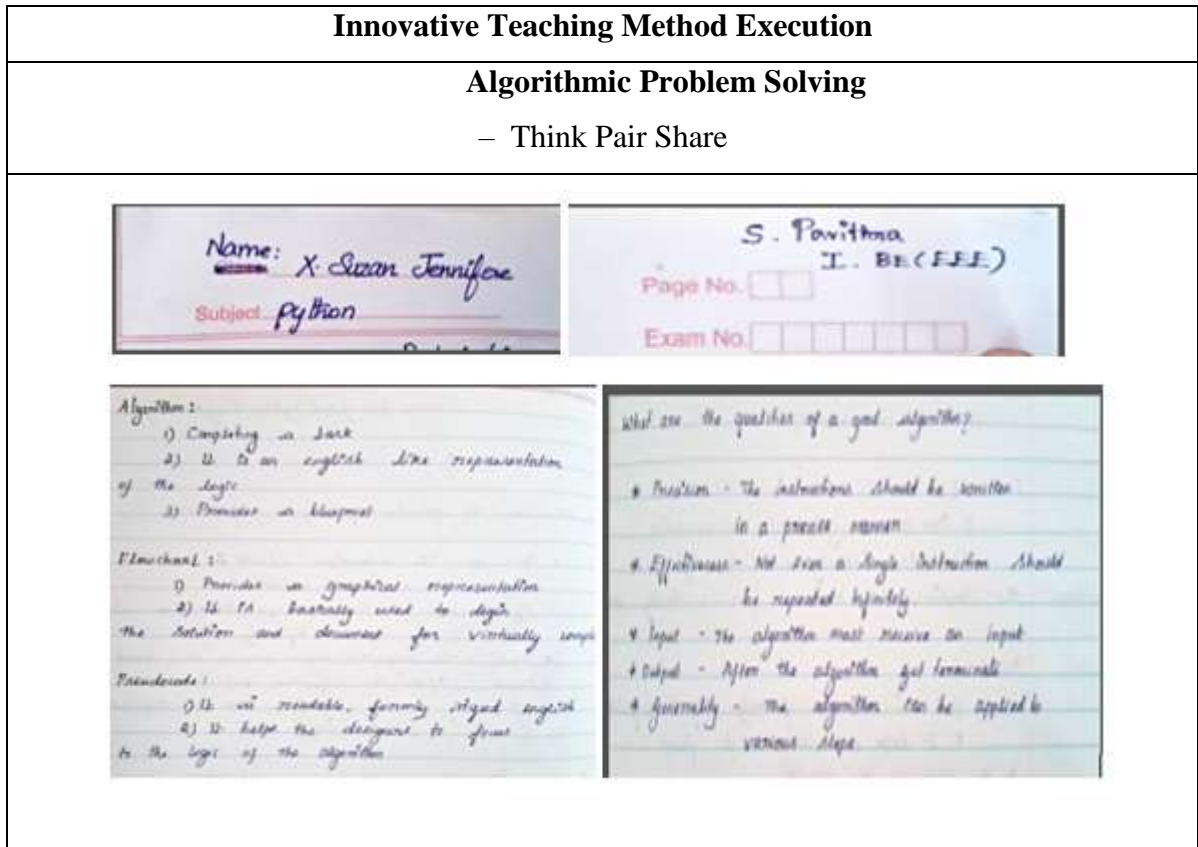 Innovative Teaching Method Execution
Algorithmic Problem Solving
– Think Pair Share
Name: X. Suzan Jennifore
Subject python
S. Pavithra
I. BE (EEE)
Page No.
Exam No.
Algorithm :
1) Completing a task
2) It is an english like representation
of the logic
3) Provides a blueprint
Flowchart :
1) Provides a graphical representation
2) It is basically used to
the solution and document for virtually
Pseudocode :
1) It is readable, formly english
2) It helps the designers to focus
to the logic of the algorithm
What are the qualities of a good algorithm?
* Precision - The instructions should be written
in a precise manner
* Effectiveness - Not even a single instruction should
be repeated infinitely.
* Input - The algorithm must receive an input
* Output - After the algorithm get terminate
* Generality - The algorithm can be applied to
various